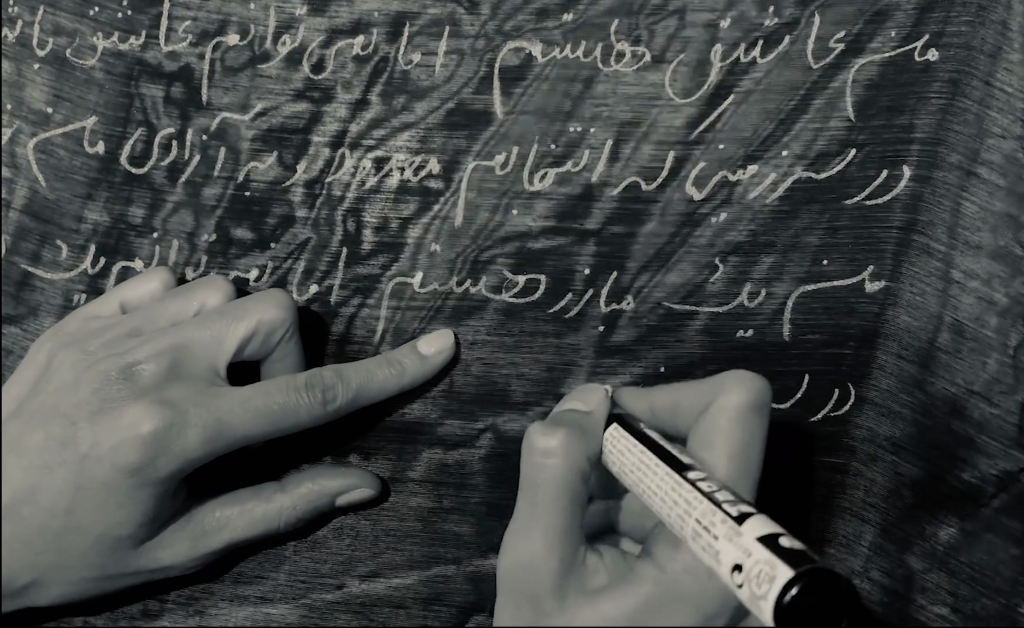 من عاشق هستم اما نمی توانم عاشق باش
در سرزمینی که انتخابم و به آزادی من
من یک مبارز هستم اما نمی توانم یک
در